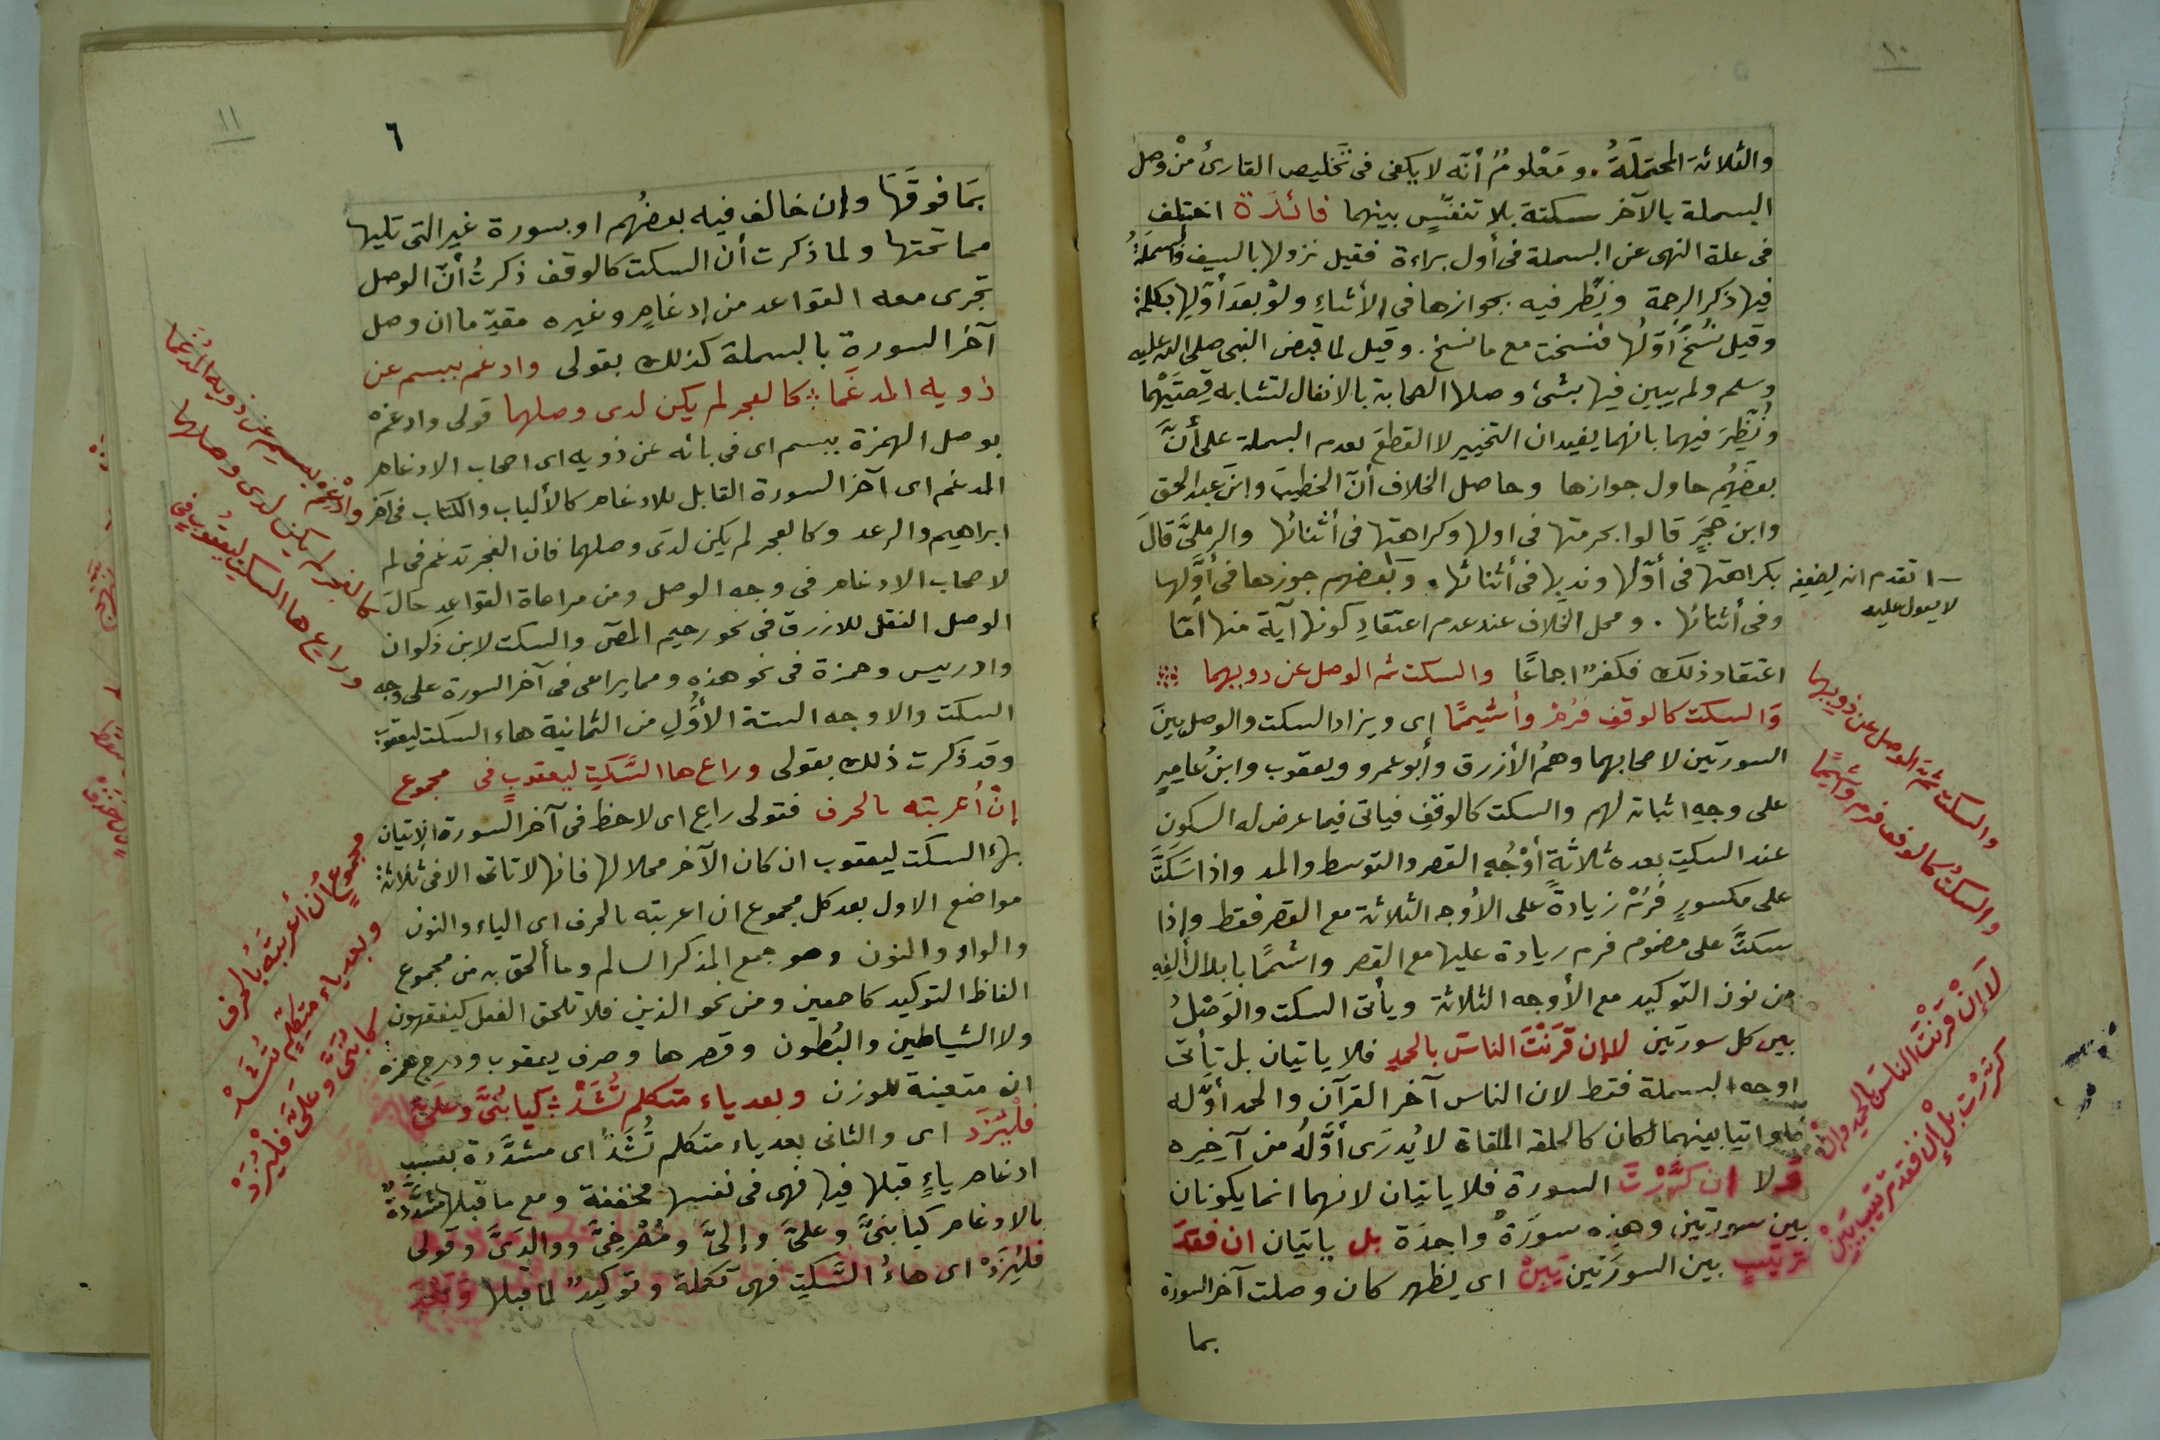 ١٠
والثلاثة المحتملة. ومَعْلومٌ أنّه لا يكفى فى تَخليص القارئ مِنْ وصل
البسملة بالآخر سكتة بلا تنفّسٍ بينهما فائدة اختلف
فى علة النهى عن البسملة فى أول براءة فقيل نزولها بالسيف والبسملة
فيها ذكر الرحمة ونُظر فيه بجوازها فى الأثناءِ ولوْ بعدَ أوّلها بكلمة
وقيل نُسخَ أوّلُها فنسخت مع ما نسخ. وقيل لما قبض النبى صلى الله عليه
وسلم ولم يبين فيها بشئ وصلها الصحابة بالانفال لتشابه قِصتَيْهما
ونُظِّرَ فيهما بانهما يفيدان التخيير لا القطعَ بعدم البسملة على أنَّ
بعضَهُم حاول جوازها وحاصل الخلاف أنّ الخطيبَ وابنَ عبد الحق
وابن حجَرٍ قالوا بحرمتها فى اولها وكراهتها فى أثنائها والرملىَّ قالَ
بكراهتها فى أوّلها وندبها فى أثنائها. وبَعضهم جوزها فى أوَّلها
ـ ا تقدم انه لضعفه
لا يعول عليه
وفى أثنائها. ومحل الخلاف عند عدم اعتقادِ كونها آية منها أمّا
اعتقاد ذلك فكفرٌ اجماعًا والسكت ثم الوصل عن ذويهما
وَالسكت كالوقفِ فرُمْ وأشيمًا اى ويزاد السكت والوصل بينَ
السورتين لاصحابهما وهُم الأزرق وأبو عمرو ويعقوب وابنُ عامِرٍ
على وجهِ اثباته لهم والسكت كالوقْفِ فياتى فيما عرض له السكون
عند السكتِ بعده ثلاثةُ أوْجُهٍ القصر والتوسط والمد واذا سَكَتَّ
على مكسورٍ فرُمْ زيادةً على الأوجه الثلاثة مع القصر فقط وإذا
سكتَّ على مضموم فرم زيادة عليها مع القصر واشمًا بابدال ألفِهِ
من نون التوكيد مع الأوجه الثلاثة ويأتى السكت والوَصْلُ
بين كل سورتين لا إن قَرَنْتَ الناسَ بالحمدِ فلا ياتيان بل تأتى
اوجه البسملة فقط لان الناس آخر القرآن والحمد أوّله
فلو اتيا بينهما لكان كالحلقة الملقاة لا يُدرَى أوَّلُه من آخِرِه
ولا ان كَرَّرْتَ السورة فلا ياتيان لانهما انما يكونان
بين سورتين وهذه سورَةٌ واحِدَة بل ياتيان ان فقدَ
ترتيبٍ بين السورَتين يَبِنْ اى يظهر كان وصلت آخر السورة
بما
والسكت ثمّ الوصل عن ذويهما
والسكتُ كالوقف فرم وأشيمًا
لا إنْ قَرَنْتَ الناسَ بالحمدِ وإنْ
كرّرْتَ بل إن فقد ترتيب يَبِنْ
١١
٦
بمَا فوقَهَا وإن خالف فيه بعضُهم او بسورة غير التى تليها
مما تحتها ولما ذكرت أن السكت كالوقف ذكرتُ أنّ الوصل
تجرى معه القواعد من إدغامٍ وغيره مقدّما ان وصل
آخر السورة بالبسملة كذلك بقولى وادغم ببسم عن
ذويه المدغَما كالفجر لم يكن لدى وصلهما قولى وادغمه
بوصل الهمزة ببسم اى فى بائه عن ذويه اى اصحاب الادغام
المدغم اى آخر السورة القابل للادغام كالألباب والكتاب فى آخر
ابراهيم والرعد وكالفجر لم يكن لدَى وصلهما فان الفجر تدغم فى لم
لاصحاب الادغام فى وجه الوصل ومن مراعاة القواعدِ حالَ
الوصل النقل للازرق فى نحو رحيم المصَ والسكت لابن ذكوان
وادريس وحمزة فى نحو هذه ومما يراعى فى آخر السورة على وجه
السكت والاوجه الستة الأوَلِ من الثمانية هاء السكت ليعقوب
وقد ذكرت ذلك بقولى وراع ها السَّكتِ ليعقوبٍ فى مجموع
إنْ أعربته بالحرف فقولى راع اى لاحظ فى آخر السورة الاتيان
بهاء السكت ليعقوب ان كان الآخر محلا لها فانها لا تاتى الا فى ثلاثة
مواضع الاول بعد كل مجموع ان اعربته بالحرف اى الياء والنون
والواو والنون وهو جمع المذكر السالم وما ألحق به من مجموع
الفاظ التوكيد كاجمعين ومن نحو الذين فلا تلحق الفعل كيفقهون
ولا الشياطين والبُطون وقصر ها وصرف يعقوب ودرج همزة
ان متعينة للوزن وبعد ياء متكلم تُشَدْ كيا بُنَىَّ وعلىَّ
فلْيُزَد اى والثانى بعد ياء متكلم تُشَدُّ اى مشدَّدة بسببِ
ادغام ياءٍ قبلها فيها فهى فى نفسها مخففة ومع ما قبلها مشدَّدةٌ
بالادغام كيا بنىَّ وعلىَّ وإلىَّ ومُصْرِخِىَّ ووالدَىَّ وقولى
فليُزَدْ اى هاءُ السَّكتِ فهى تكملة وتوكيدٌ لما قبلها وبَعْدَ
وادْغِمْهُ ببسمِ عن ذويه المدْغَما
كالفجر لم يكن لدى وصلهما
وراع ها السكتِ ليعقوبٍ فى
مجموعٍ إن أعربتَه بالحرف
وبعد ياء متكلّمٍ تُشَدْ
كيا بُنَىَّ وعلىَّ فليُزدْ